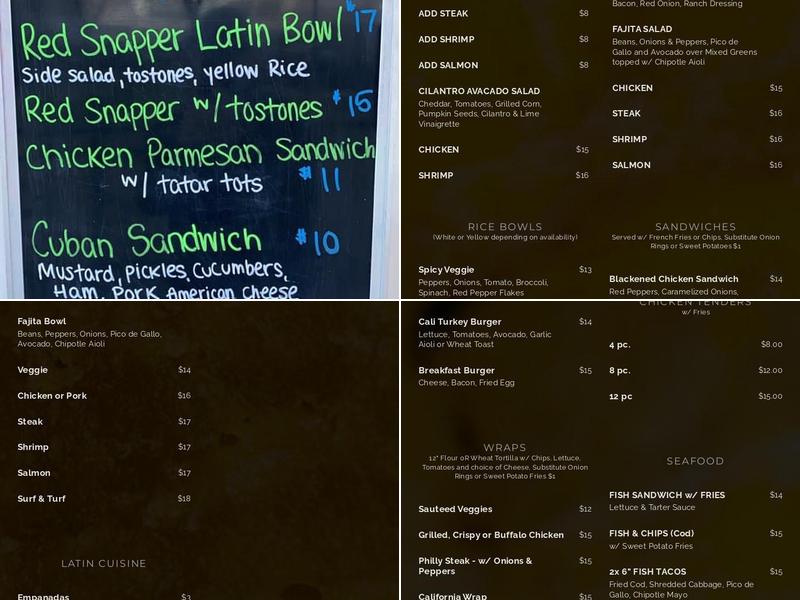 Red Snapper Latin Bowl $17
Side salad, tostones, yellow Rice
Red Snapper w/ tostones $15
Chicken Parmesan Sandwich
w/ tatar tots $11
Cuban Sandwich $10
Mustard, Pickles, Cucumbers,
Ham, Pork American cheese
ADD STEAK $8
ADD SHRIMP $8
ADD SALMON $8
CILANTRO AVACADO SALAD
Cheddar, Tomatoes, Grilled Corn,
Pumpkin Seeds, Cilantro & Lime
Vinaigrette
CHICKEN $15
SHRIMP $16
RICE BOWLS
(White or Yellow depending on availability)
Spicy Veggie $13
Peppers, Onions, Tomato, Broccoli,
Spinach, Red Pepper Flakes
Bacon, Red Onion, Ranch Dressing
FAJITA SALAD
Beans, Onions & Peppers, Pico de
Gallo and Avocado over Mixed Greens
topped w/ Chipotle Aioli
CHICKEN $15
STEAK $16
SHRIMP $16
SALMON $16
SANDWICHES
Served w/ French Fries or Chips, Substitute Onion
Rings or Sweet Potatoes $1
Blackened Chicken Sandwich $14
Red Peppers, Caramelized Onions,
Fajita Bowl
Beans, Peppers, Onions, Pico de Gallo,
Avocado, Chipotle Aioli
Veggie $14
Chicken or Pork $16
Steak $17
Shrimp $17
Salmon $17
Surf & Turf $18
LATIN CUISINE
Empanadas $3
Cali Turkey Burger $14
Lettuce, Tomatoes, Avocado, Garlic
Aioli or Wheat Toast
Breakfast Burger $15
Cheese, Bacon, Fried Egg
WRAPS
12" Flour oR Wheat Tortilla w/ Chips, Lettuce,
Tomatoes and choice of Cheese, Substitute Onion
Rings or Sweet Potato Fries $1
Sauteed Veggies $12
Grilled, Crispy or Buffalo Chicken $15
Philly Steak - w/ Onions & $15
Peppers
California Wrap $15
CHICKEN TENDERS
w/ Fries
4 pc. $8.00
8 pc. $12.00
12 pc $15.00
SEAFOOD
FISH SANDWICH w/ FRIES $14
Lettuce & Tarter Sauce
FISH & CHIPS (Cod) $15
w/ Sweet Potato Fries
2x 6" FISH TACOS $15
Fried Cod, Shredded Cabbage, Pico de
Gallo, Chipotle Mayo